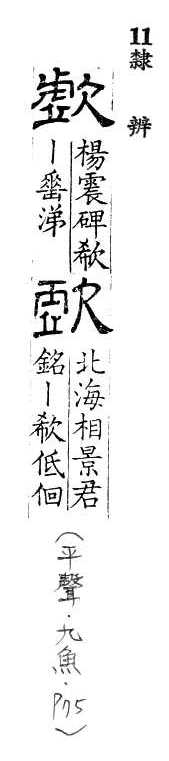 11隸辨
歔
楊震碑欷
｜涕
北海相景君
銘｜欷低佪
(平聲．九魚．P75)